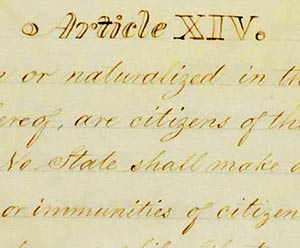 Article XIV.
or naturalized in th
ereof, are citizens of the
No State shall make o
or immunities of citizen